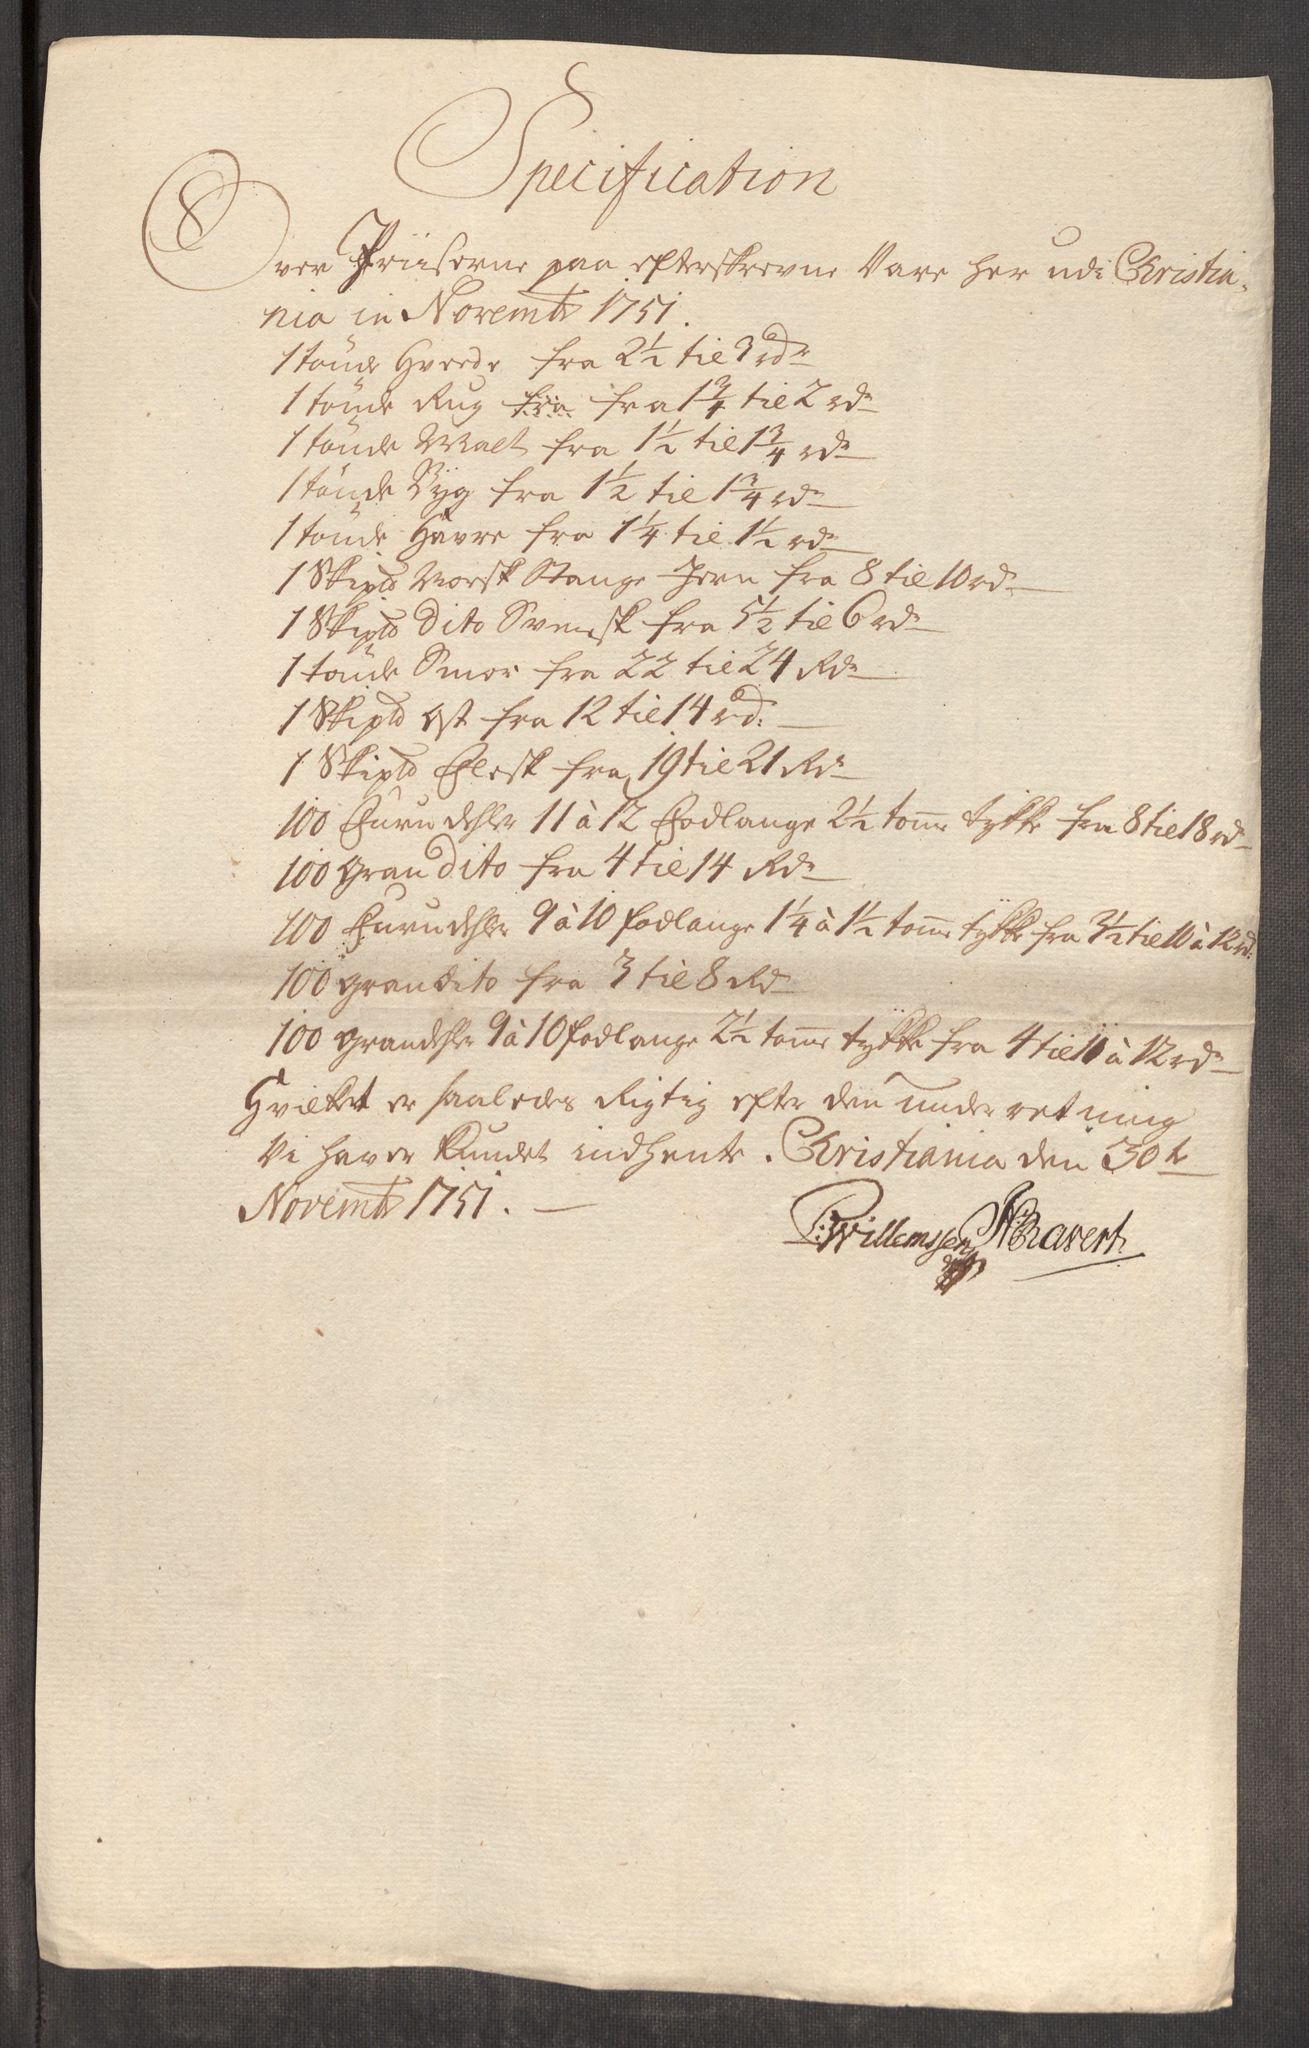 Specification
Over Priiserne paa efterskrevne Vare her udi Christia-
nia in Novembr 1751.
1 tönde Hvede fra 2½ til 3 rdr
1 tönde Rug fra fra 1¾ til 2 rdr
1 tönde Malt fra 1½ til 1¾ rdr
1 tönde Byg fra 1½ til 1¾ rdr
1 tönde Havre fra 1¼ til 1½ rdr
1 Skipld Norsk Stange Jern fra 8 til 10 rdr
1 Skipld Dito Svensk fra 5½ til 6 rdr
1 tönde Smør fra 22 til 24 Rdr
1 Skipld Ost fra 12 til 14 rd.
1 Skipld Flesk fra 19 til 21 Rdr
100 Furu dehler 11 à 12 Fodlange 2½ tomme tykke fra 8 til 18 rdr
100 gran Dito fra 4 til 14 Rdr
100 Furu dehler 9 à 10 fodlange 1¼ à 1½ tomme tykke fra 3½ til 10 à 12 rd.
100 gran dito fra 3 til 8 Rdr
100 gran dehler 9 à 10 fodlange 2½ tomme tykke fra 4 til 11 à 12 rdr
Hvilket er saaledes Rigtig efter den underretning
Vi haver Kundet indhente. Christiania den 30te
Novembr 1751.
P: Willemssen Ravert